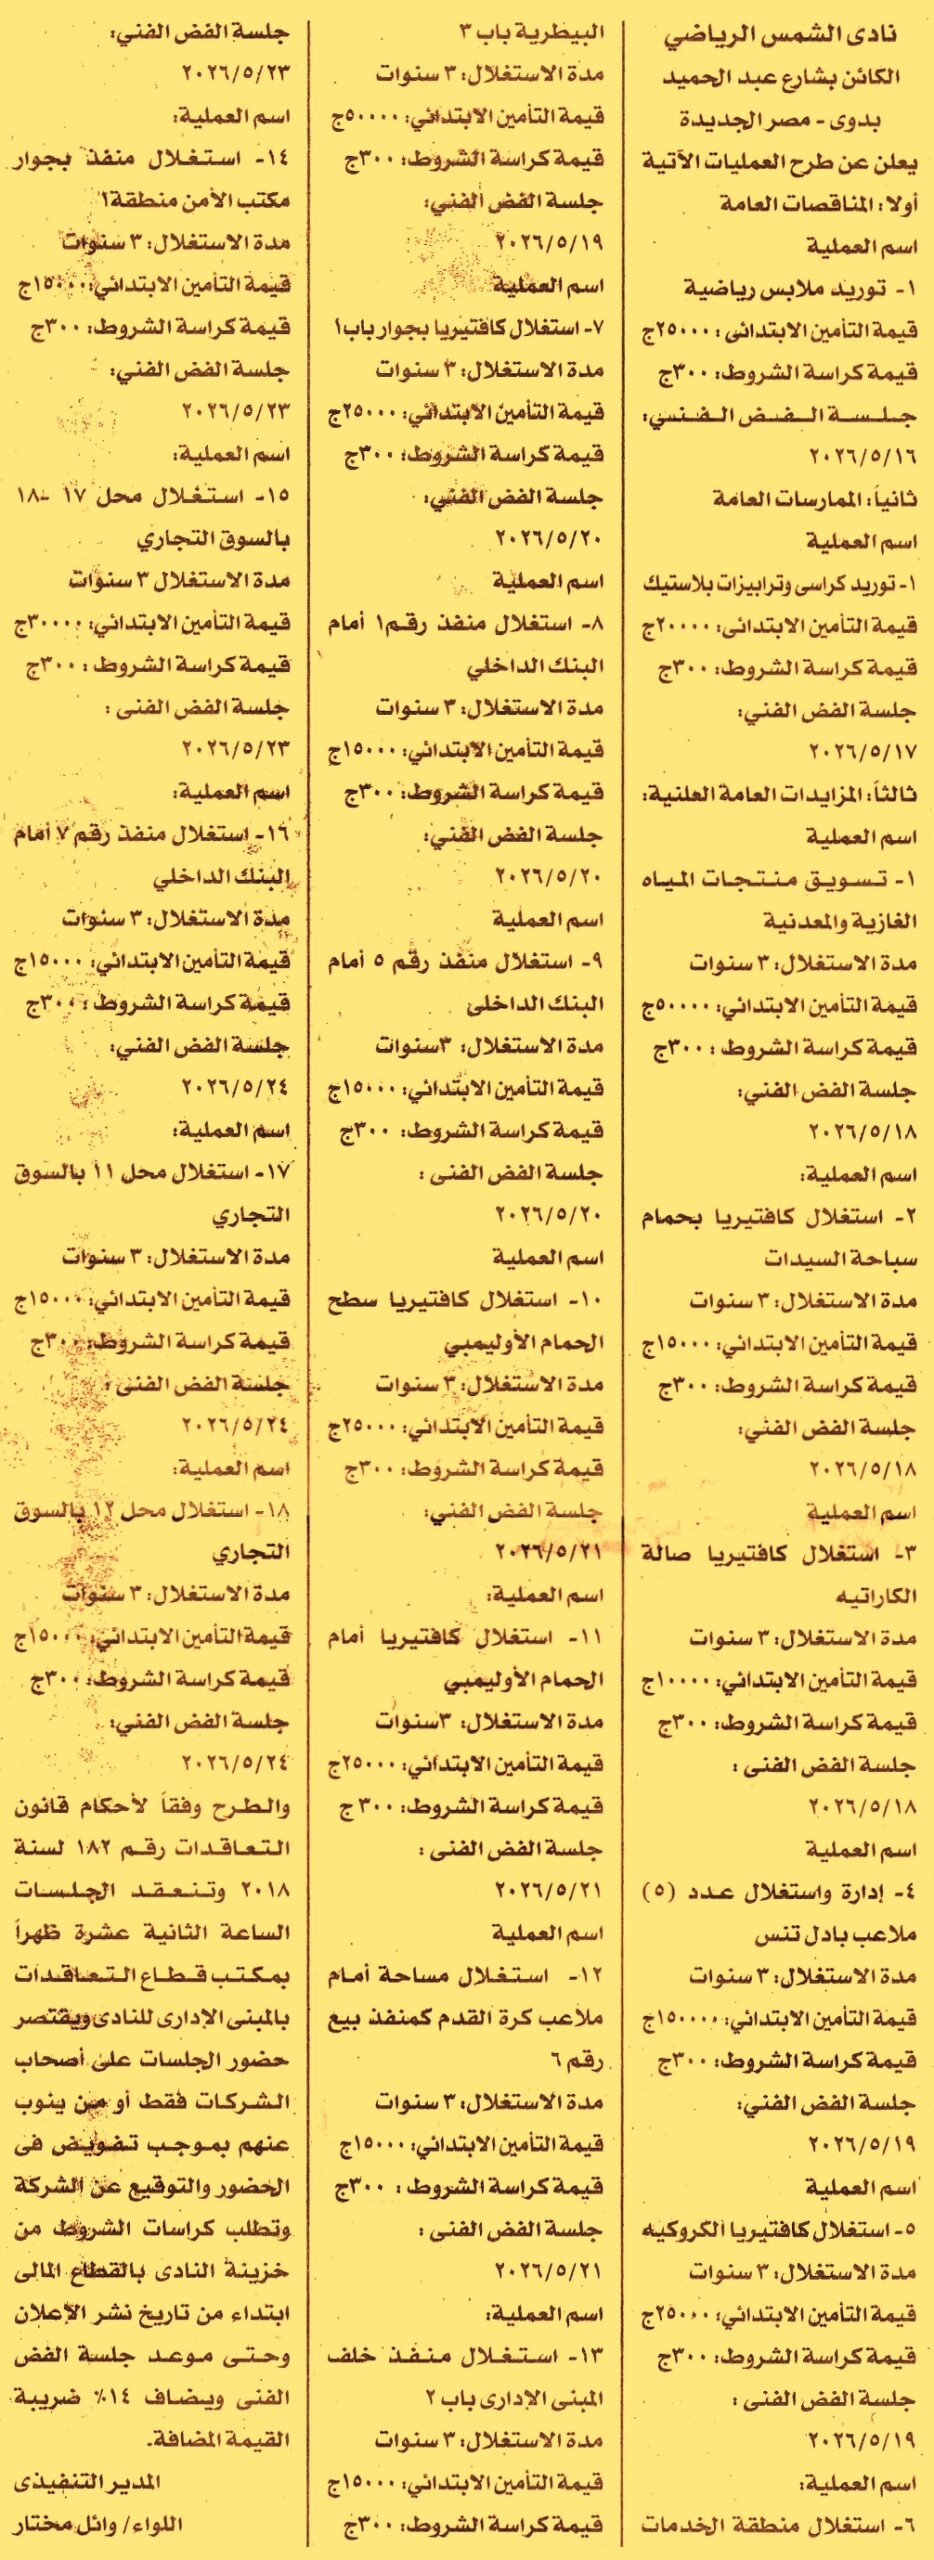 نادى الشمس الرياضي
الكائن بشارع عبد الحميد
بدوى - مصر الجديدة
يعلن عن طرح العمليات الآتية
أولا: المناقصات العامة
اسم العملية
١- توريد ملابس رياضية
قيمة التأمين الابتدائى: ٢٥٠٠٠ج
قيمة كراسة الشروط: ٣٠٠ج
جلسة الفض الفني:
٢٠٢٦/٥/١٦
ثانياً: الممارسات العامة
اسم العملية
١- توريد كراسى وترابيزات بلاستيك
قيمة التأمين الابتدائى: ٢٠٠٠٠ج
قيمة كراسة الشروط: ٣٠٠ج
جلسة الفض الفني:
٢٠٢٦/٥/١٧
ثالثاً: المزايدات العامة العلنية:
اسم العملية
١- تسويق منتجات المياه
الغازية والمعدنية
مدة الاستغلال: ٣ سنوات
قيمة التأمين الابتدائي: ٥٠٠٠٠ج
قيمة كراسة الشروط : ٣٠٠ج
جلسة الفض الفني:
٢٠٢٦/٥/١٨
اسم العملية:
٢- استغلال كافتيريا بحمام
سباحة السيدات
مدة الاستغلال: ٣ سنوات
قيمة التأمين الابتدائي: ١٥٠٠٠ج
قيمة كراسة الشروط: ٣٠٠ج
جلسة الفض الفني:
٢٠٢٦/٥/١٨
اسم العملية
٣- استغلال كافتيريا صالة
الكاراتيه
مدة الاستغلال: ٣ سنوات
قيمة التأمين الابتدائي: ١٠٠٠٠ج
قيمة كراسة الشروط: ٣٠٠ج
جلسة الفض الفنى :
٢٠٢٦/٥/١٨
اسم العملية
٤- إدارة واستغلال عدد (٥)
ملاعب بادل تنس
مدة الاستغلال: ٣ سنوات
قيمة التأمين الابتدائي: ١٥٠٠٠٠ج
قيمة كراسة الشروط: ٣٠٠ج
جلسة الفض الفني:
٢٠٢٦/٥/١٩
اسم العملية
٥- استغلال كافتيريا الكروكيه
مدة الاستغلال: ٣ سنوات
قيمة التأمين الابتدائي: ٢٥٠٠٠ج
قيمة كراسة الشروط: ٣٠٠ج
جلسة الفض الفنى :
٢٠٢٦/٥/١٩
اسم العملية:
٦- استغلال منطقة الخدمات
البيطرية باب ٣
مدة الاستغلال: ٣ سنوات
قيمة التأمين الابتدائي: ٥٠٠٠٠ج
قيمة كراسة الشروط: ٣٠٠ج
جلسة الفض الفني:
٢٠٢٦/٥/١٩
اسم العملية
٧- استغلال كافتيريا بجوار باب١
مدة الاستغلال: ٣ سنوات
قيمة التأمين الابتدائي: ٢٥٠٠٠ج
قيمة كراسة الشروط: ٣٠٠ج
جلسة الفض الفني:
٢٠٢٦/٥/٢٠
اسم العملية
٨- استغلال منفذ رقم١ أمام
البنك الداخلي
مدة الاستغلال: ٣ سنوات
قيمة التأمين الابتدائي: ١٥٠٠٠ج
قيمة كراسة الشروط: ٣٠٠ج
جلسة الفض الفني:
٢٠٢٦/٥/٢٠
اسم العملية
٩- استغلال منفذ رقم ٥ أمام
البنك الداخلى
مدة الاستغلال: ٣سنوات
قيمة التأمين الابتدائي: ١٥٠٠٠ج
قيمة كراسة الشروط: ٣٠٠ج
جلسة الفض الفنى :
٢٠٢٦/٥/٢٠
اسم العملية
١٠- استغلال كافتيريا سطح
الحمام الأوليمبي
مدة الاستغلال: ٣ سنوات
قيمة التأمين الابتدائي: ٢٥٠٠٠ج
قيمة كراسة الشروط: ٣٠٠ج
جلسة الفض الفني:
٢٠٢٦/٥/٢١
اسم العملية:
١١- استغلال كافتيريا أمام
الحمام الأوليمبي
مدة الاستغلال: ٣سنوات
قيمة التأمين الابتدائي: ٢٥٠٠٠ج
قيمة كراسة الشروط: ٣٠٠ ج
جلسة الفض الفنى :
٢٠٢٦/٥/٢١
اسم العملية
١٢- استغلال مساحة أمام
ملاعب كرة القدم كمنفذ بيع
رقم ٦
مدة الاستغلال: ٣ سنوات
قيمة التأمين الابتدائي: ١٥٠٠٠ج
قيمة كراسة الشروط : ٣٠٠ج
جلسة الفض الفنى :
٢٠٢٦/٥/٢١
اسم العملية:
١٣- استغلال منفذ خلف
المبنى الإدارى باب ٢
مدة الاستغلال: ٣ سنوات
قيمة التأمين الابتدائي: ١٥٠٠٠ج
قيمة كراسة الشروط: ٣٠٠ج
جلسة الفض الفني:
٢٠٢٦/٥/٢٣
اسم العملية:
١٤- استغلال منفذ بجوار
مكتب الأمن منطقة١
مدة الاستغلال: ٣ سنوات
قيمة التأمين الابتدائي: ١٥٠٠٠ج
قيمة كراسة الشروط: ٣٠٠ج
جلسة الفض الفني:
٢٠٢٦/٥/٢٣
اسم العملية:
١٥- استغلال محل ١٧ -١٨
بالسوق التجاري
مدة الاستغلال ٣ سنوات
قيمة التأمين الابتدائي: ٣٠٠٠٠ج
قيمة كراسة الشروط : ٣٠٠ج
جلسة الفض الفنى :
٢٠٢٦/٥/٢٣
اسم العملية:
١٦- استغلال منفذ رقم ٧ أمام
البنك الداخلي
مدة الاستغلال: ٣ سنوات
قيمة التأمين الابتدائي: ١٥٠٠٠ج
قيمة كراسة الشروط : ٣٠٠ج
جلسة الفض الفني:
٢٠٢٦/٥/٢٤
اسم العملية:
١٧- استغلال محل ١١ بالسوق
التجاري
مدة الاستغلال: ٣ سنوات
قيمة التأمين الابتدائي: ١٥٠٠٠ج
قيمة كراسة الشروط: ٣٠٠ج
جلسة الفض الفنى :
٢٠٢٦/٥/٢٤
اسم العملية:
١٨- استغلال محل ١٢ بالسوق
التجاري
مدة الاستغلال: ٣ سنوات
قيمة التأمين الابتدائي: ١٥٠٠٠ج
قيمة كراسة الشروط: ٣٠٠ج
جلسة الفض الفني:
٢٠٢٦/٥/٢٤
والطرح وفقاً لأحكام قانون
التعاقدات رقم ١٨٢ لسنة
٢٠١٨ وتنعقد الجلسات
الساعة الثانية عشرة ظهراً
بمكتب قطاع التعاقدات
بالمبنى الإدارى للنادى ويقتصر
حضور الجلسات على أصحاب
الشركات فقط أو من ينوب
عنهم بموجب تفويض فى
الحضور والتوقيع عن الشركة
وتطلب كراسات الشروط من
خزينة النادى بالقطاع المالى
ابتداء من تاريخ نشر الإعلان
وحتى موعد جلسة الفض
الفنى ويضاف ١٤٪ ضريبة
القيمة المضافة.
المدير التنفيذى
اللواء/ وائل مختار